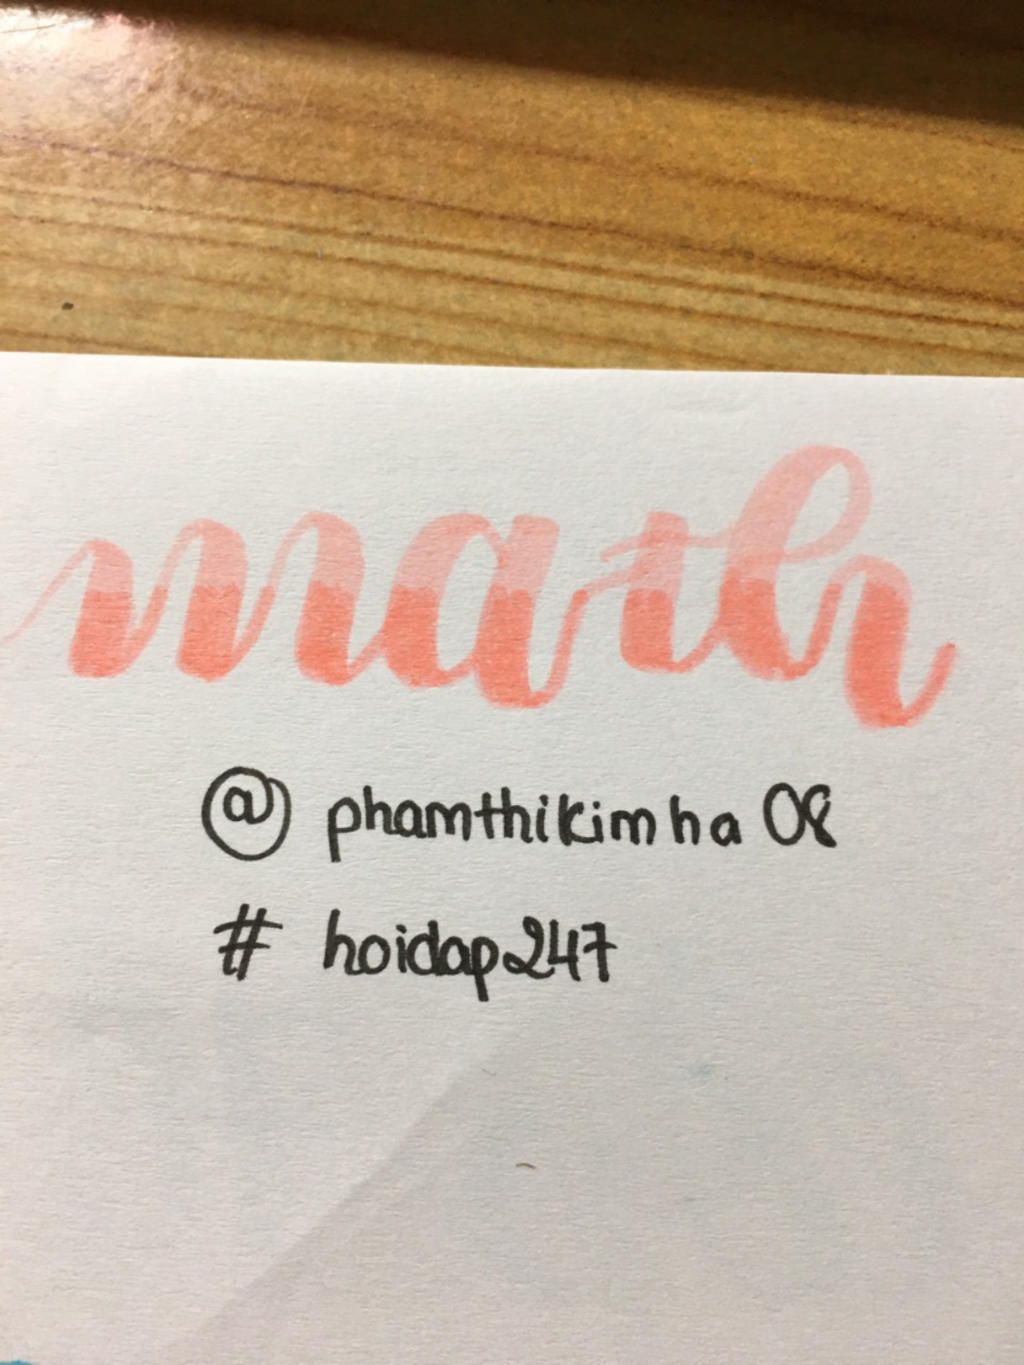 math
@ phamthikimha 08
# hoidap247